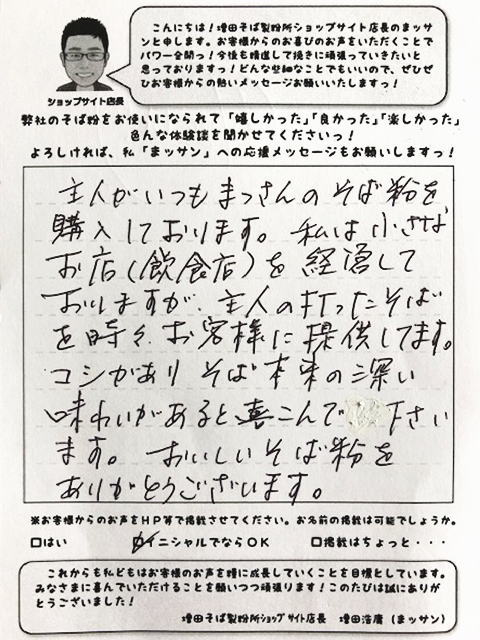 こんにちは！増田そば製粉所ショップサイト店長のマッサ
ンと申します。お客様からのお喜びのお声をいただくことで
パワー全開っ！今後も精進して挽きに頑張っていきたいと
思っておりますっ！どんな些細なことでもいいので、ぜひぜ
ひお客様からの熱いメッセージお願いいたしますっ！
ショップサイト店長
弊社のそば粉をお使いになられて「嬉しかった」「良かった」「楽しかった」
色んな体験談を聞かせてくださいっ！
よろしければ、私「まッサン」への応援メッセージもお願いしますっ！
主人がいつもまっさんのそば粉を
購入しております。私は小さな
お店（飲食店）を経営して
おりますが、主人の打ったそば
を時々、お客様に提供してます。
コシがあり そば本来の深い
味わいがあると喜こんで下さい
ます。おいしいそば粉を
ありがとうございます。
※お客様からのお声をHP等で掲載させてください。お名前の掲載は可能でしょうか。
□はい ☑イニシャルでならOK □掲載はちょっと・・・
これからも私どもはお客様のお声を糧に成長していくことを目標としています。
みなさまに喜んでいただけることを願いつつ頑張ります！このたびは誠にありが
とうございました！
増田そば製粉所ショップサイト店長 増田浩庸（マッサン）